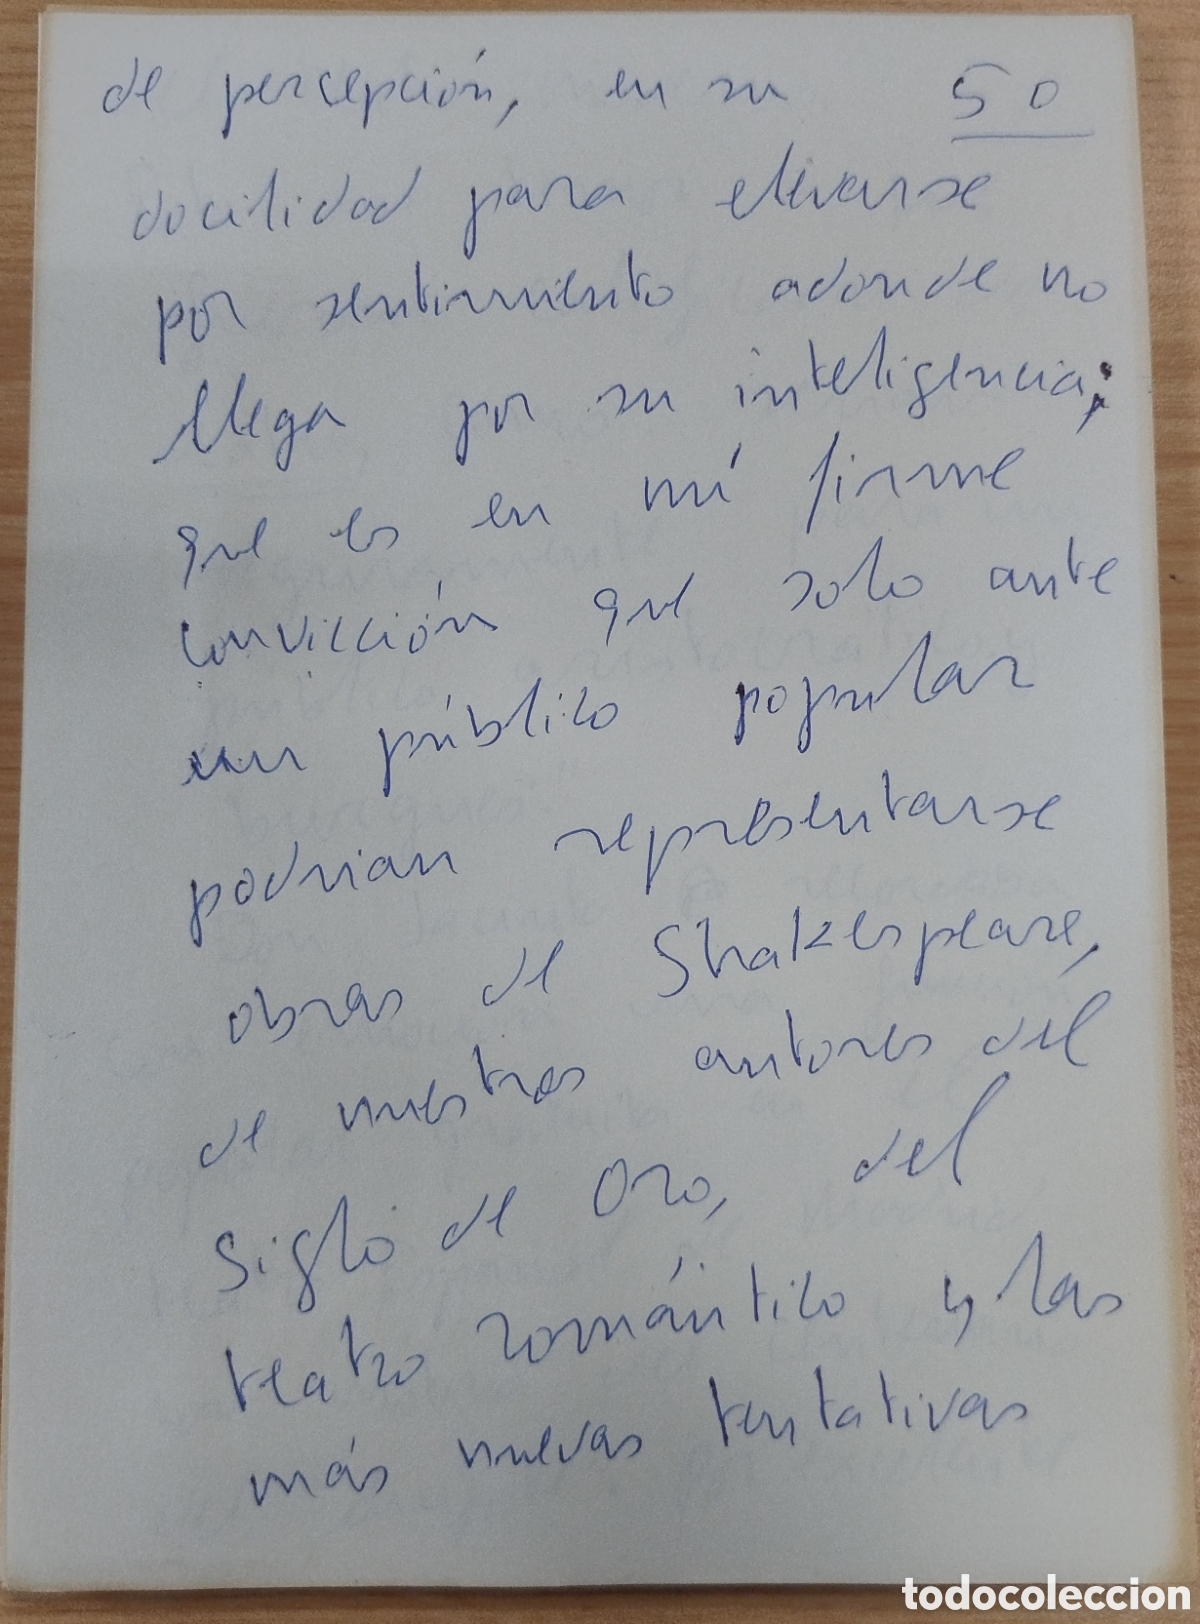 de percepción, en su 50
docilidad para elevarse
por sentimiento adonde no
llega por su inteligencia;
que es en mí firme
convicción que solo ante
un público popular
podrian representarse
obras de Shakespeare,
de nuestros autores del
Siglo de Oro, del
teatro romántico y las
más nuevas tentativas
todocoleccion